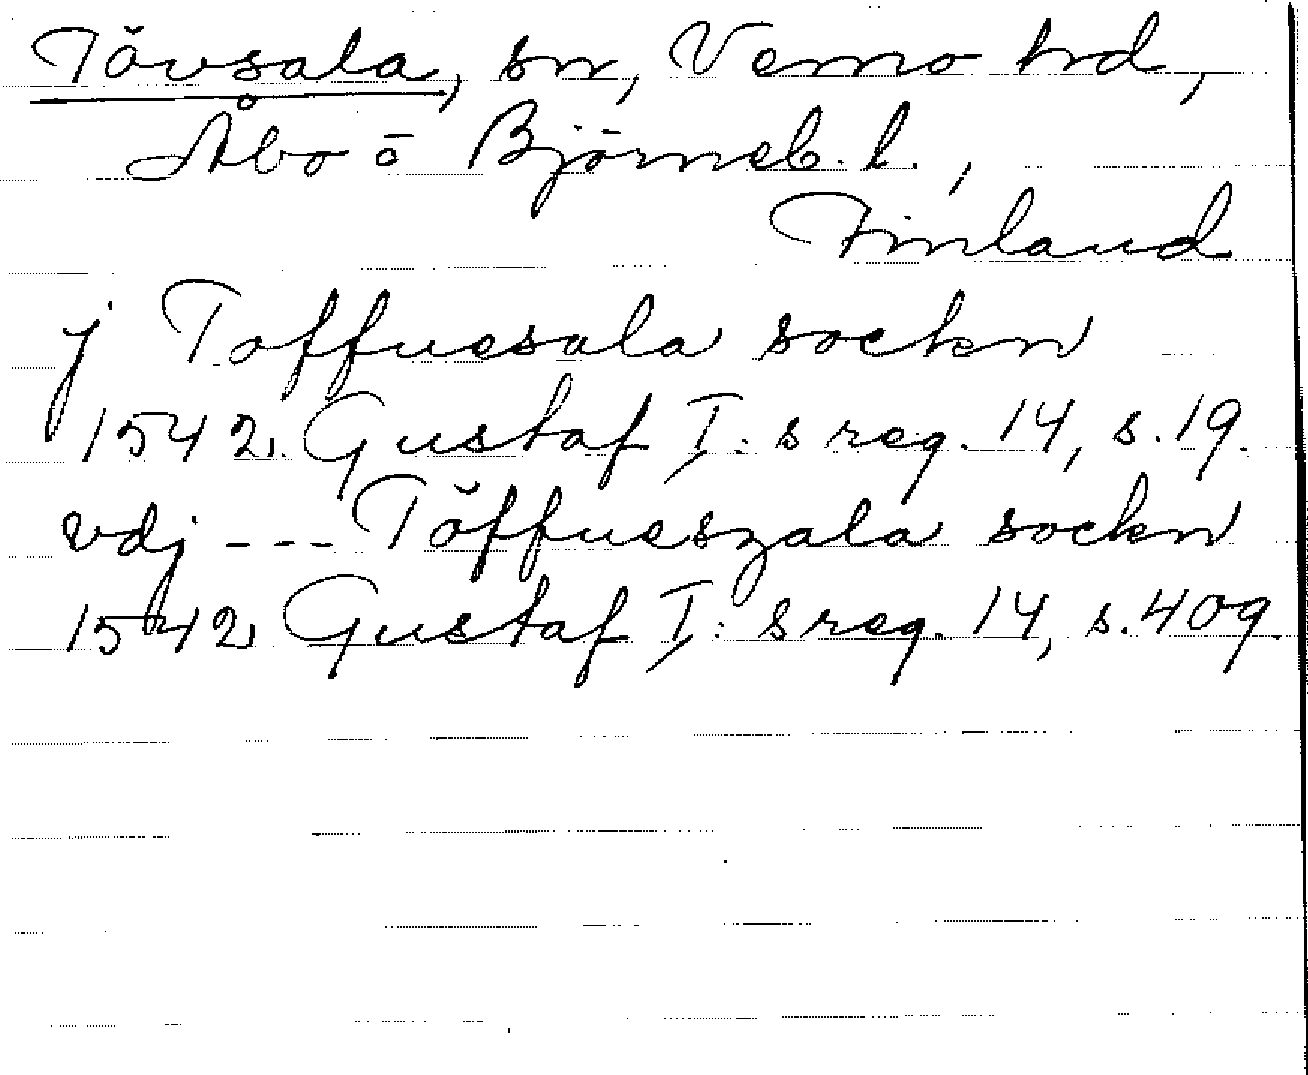 Tövsala, sn, Vemo hd,
Åbo o Björneb. l.,
Finland
j Toffuesala sockn
1542. Gustaf I:s reg. 14, s. 19.
vdj --- Töffueszala sockn
1542 Gustaf I:s reg. 14, s. 409.